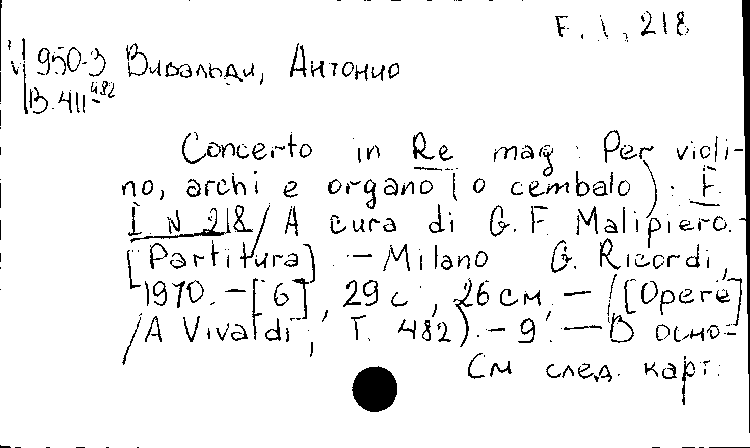 F. I, 218
950-3 Вивальди, Антонио
В.411-482
Concerto in Re mag : Per violi-
no, archi e organo (o cembalo) : F.
I N 218 / A cura di G. F. Malipiero. -
[Partitura] - Milano G. Ricordi,
1970. - [6], 29 с., 26 см, - ([Opere]
/A Vivaldi; T. 482). - 9. - В осно=
См след. карт.